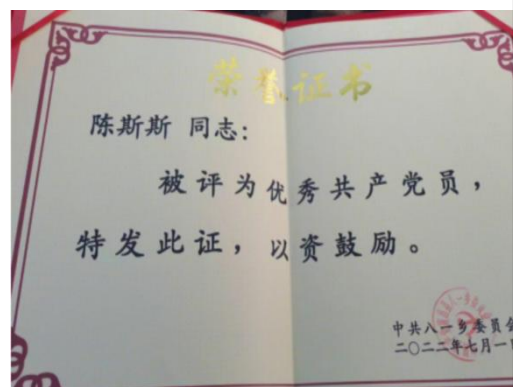 荣誉证书
陈斯斯 同志：
被评为优秀共产党员，
特发此证，以资鼓励。
中共八一乡委员会
二〇二二年七月一日